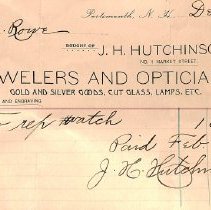 Portsmouth, N. H., De
Rowe
BOUGHT OF J. H. HUTCHINSO
No. 1 MARKET STREET.
WELERS AND OPTICIA
GOLD AND SILVER GOODS, CUT GLASS, LAMPS, ETC.
AND ENGRAVING
rep watch 1
Paid Feb.
J. H. Hutchin